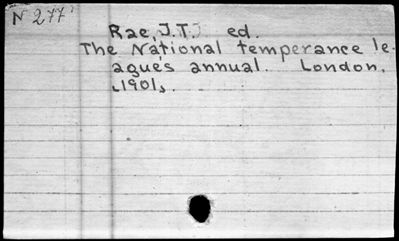 N 277
Rae, J.T. ed.
The National temperance le-
ague's annual. London,
[1901].